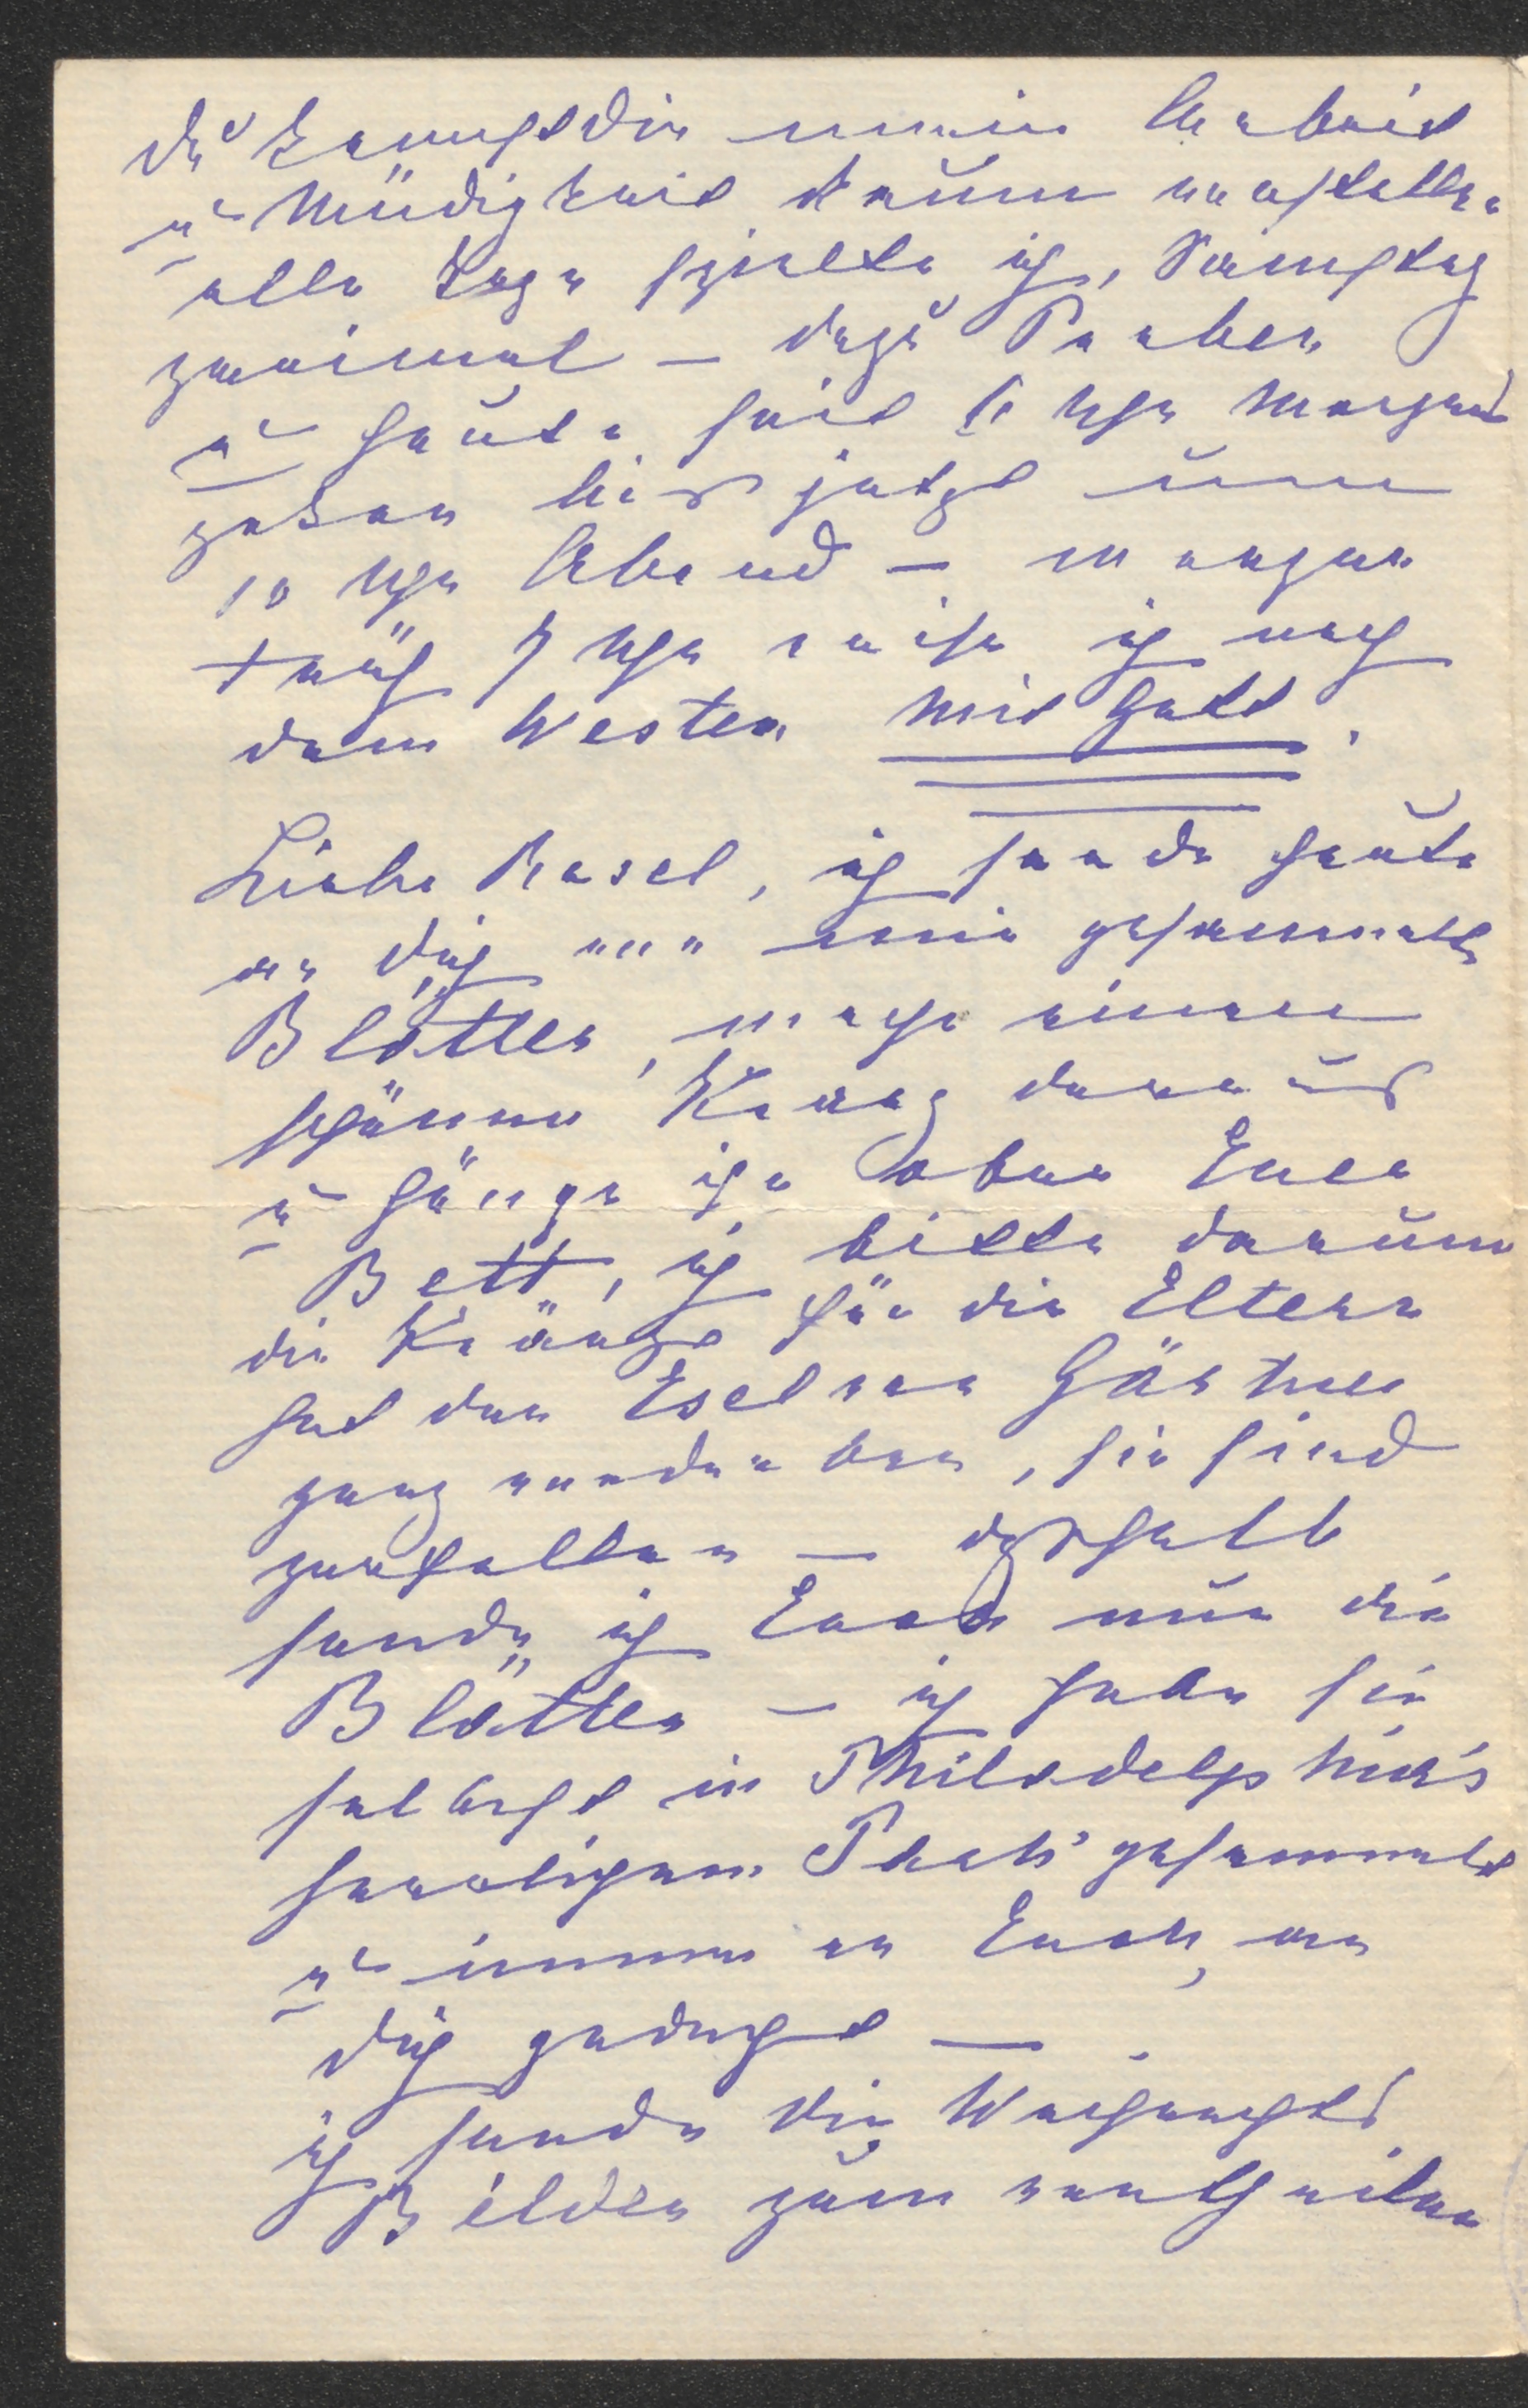 Du kannst Dir meine Arbeit
u Müdigkeit kaum vorstellen
alle Tage spielte ich, Samstag
zweimal – dazu Proben
u heute seit 6 Uhr Morgens
packen bis jetzt um
10 Uhr Abend – morgen
früh 7 Uhr reise ich nach
dem Westen mit Gott.
Liebe Resel, ich sende heute
an Dich von mir gesammelte
Blätter, mache einen
schönen Kranz daraus
u hänge ihn ober Euer
Bett, ich bitte darum
die Kränze für die Eltern
hat der Esel von Gärtner
ganz verdorben, sie sind
zerfallen – deshalb
sende ich Euch nur die
Blätter – ich habe sie
selbst in Philadelphia's
herrlichem Park gesammelt
u immer an Euch, an
Dich gedacht –
ich sende Dir Weihnachts
Bilder zum vertheilen